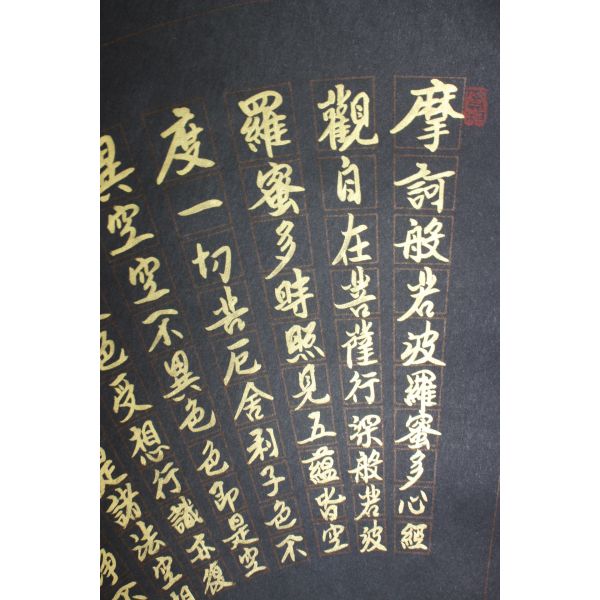 摩訶般若波羅蜜多心經
觀自在菩薩行深般若波
羅蜜多時照見五蘊皆空
度一切苦厄舍利子色不
異空空不異色色即是空
色受想行識亦復
是諸法空相
淨不